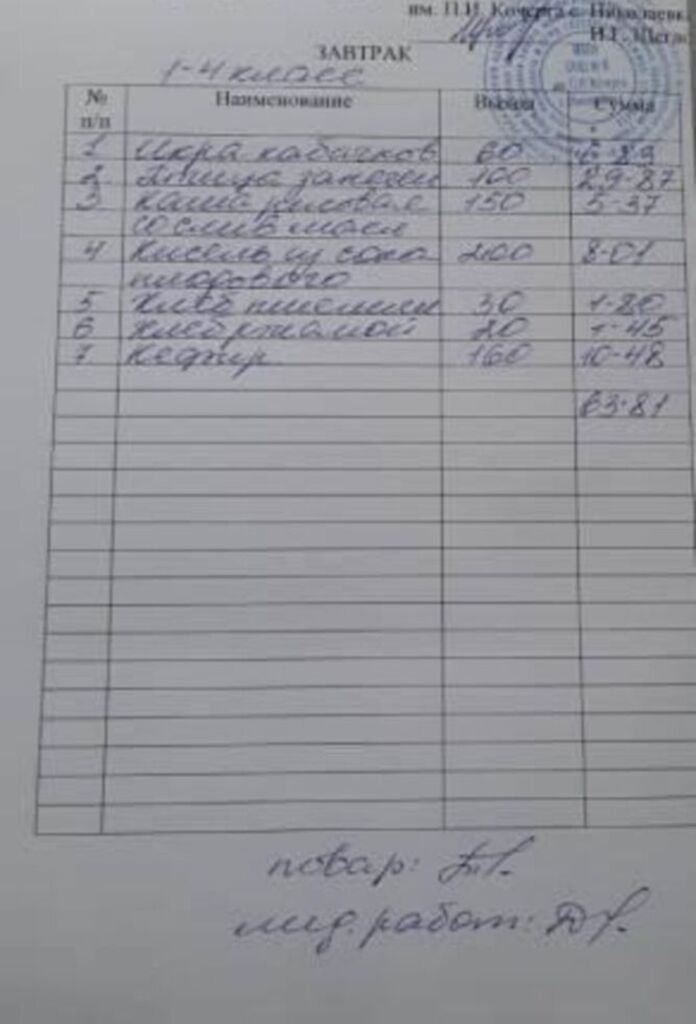 им. П.И. Кочерга с. Николаевк
И.Г. Щегл
ЗАВТРАК
1-4 класс
№ п/п Наименование Выход Сумма
1 Икра кабачков 60 6-89
2 Птица запечен 100 29-87
3 каша рисовая 150 5-37
со слив масл
4 Кисель из сока 200 8-01
плодового
5 Хлеб пшеничн 30 1-80
6 Хлеб ржаной 20 1-45
7 Кефир 160 10-48
63-81
повар:
мед. работ: